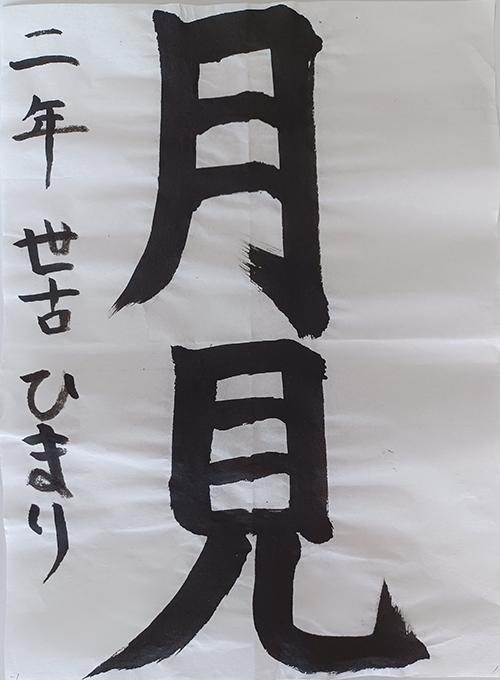 月見
二年 世古 ひまり